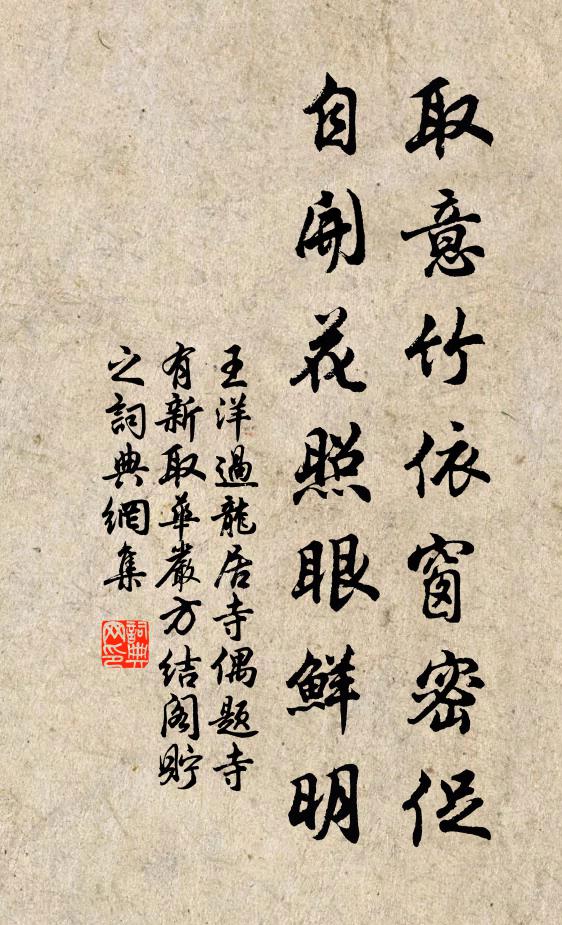 取意竹依窗密促
自開花照眼鮮明
王洋過龍居寺偶题寺
有新取華嚴方结阁貯
之詞典網集
詞典
网印